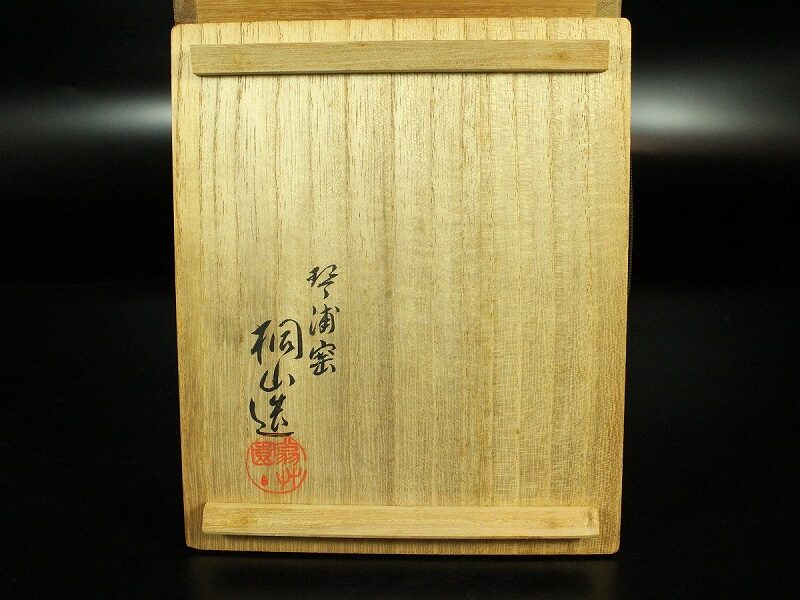 琴浦窯
桐山造